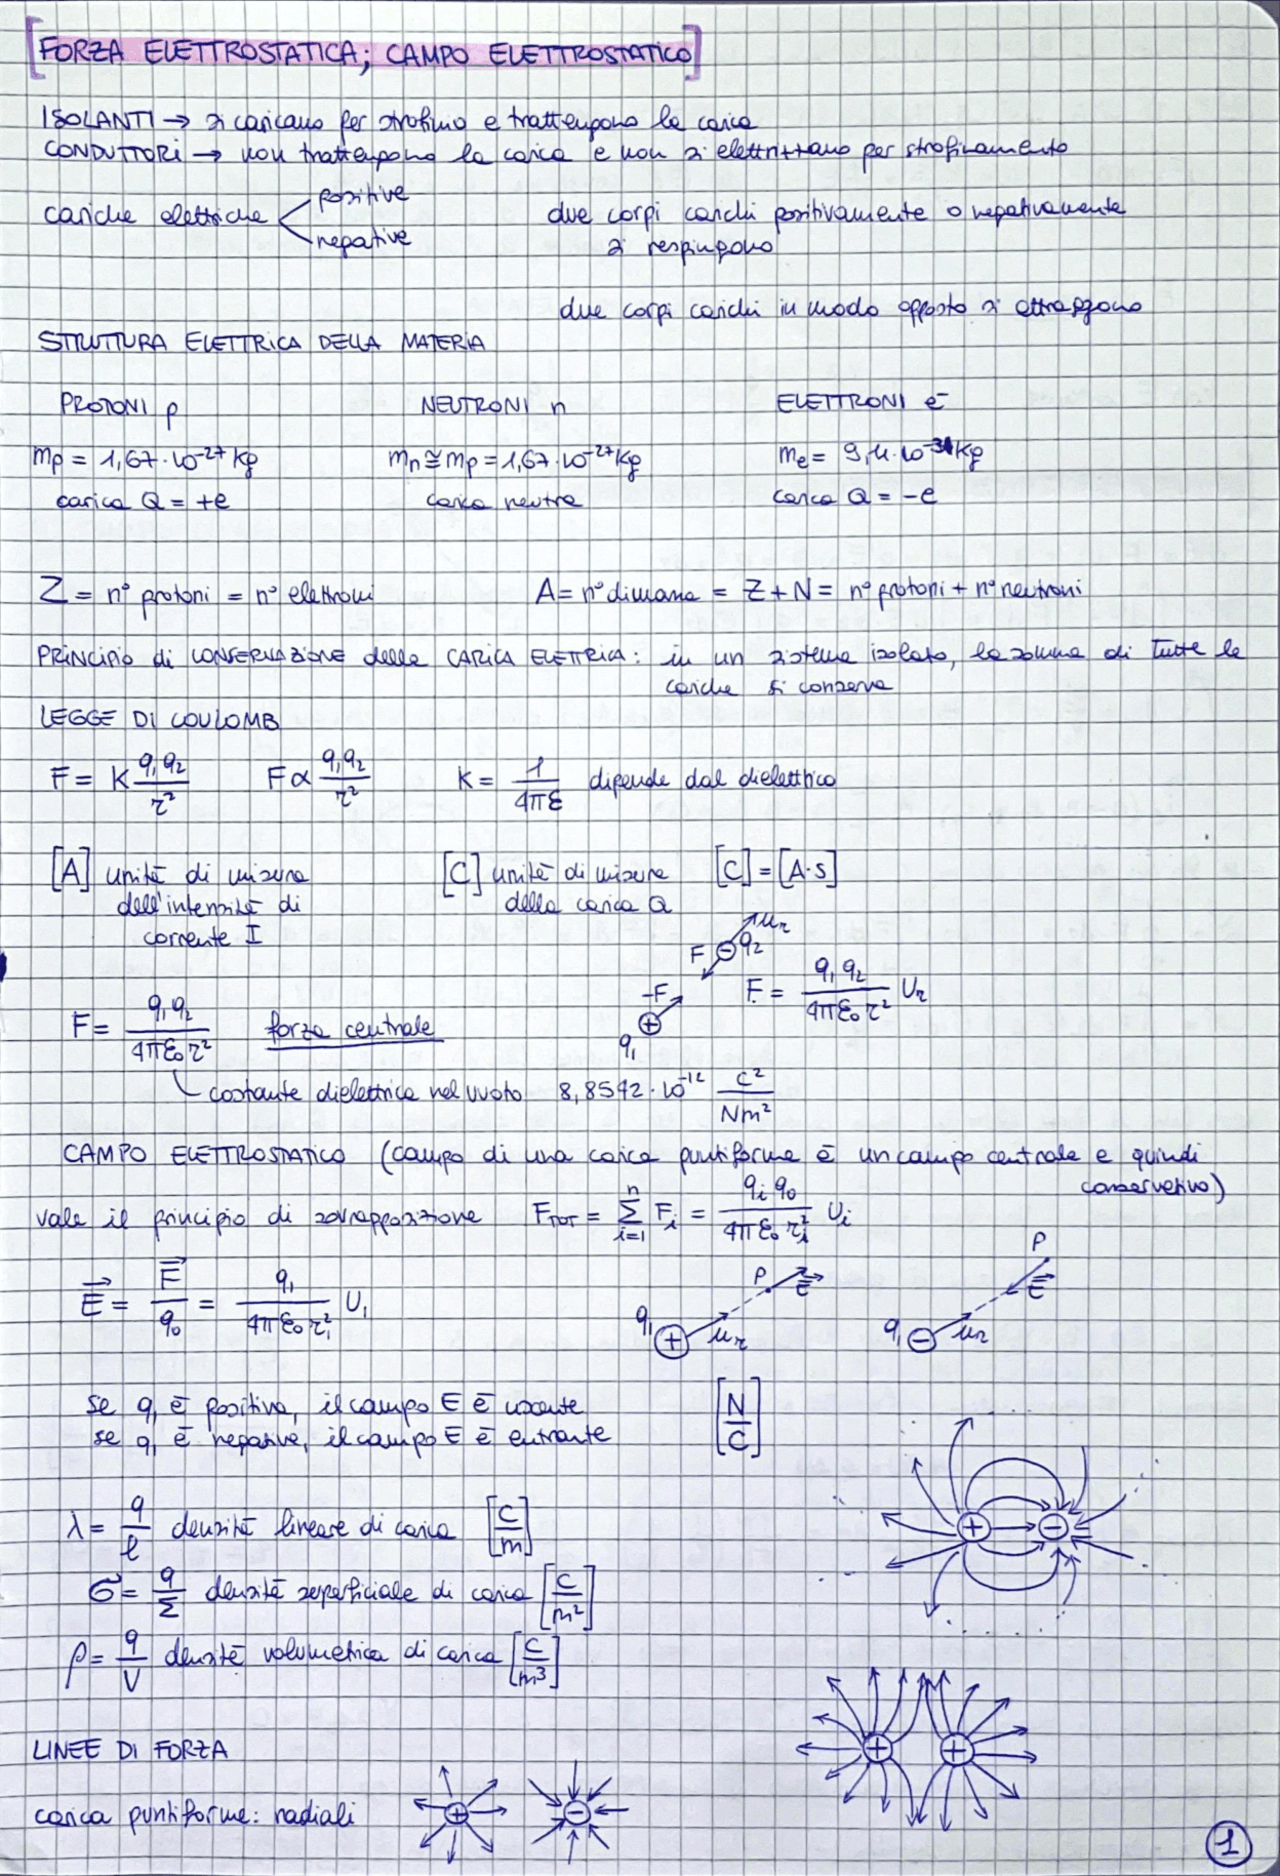 [FORZA ELETTROSTATICA; CAMPO ELETTROSTATICO]
ISOLANTI → si caricano per strofinio e trattengono la carica
CONDUTTORI → non trattengono la carica e non si elettrizzano per strofinamento
cariche elettriche < positive
negative
due corpi carichi positivamente o negativamente
si respingono
due corpi carichi in modo opposto si attraggono
STRUTTURA ELETTRICA DELLA MATERIA
PROTONI p NEUTRONI n ELETTRONI e⁻
mp = 1,67·10⁻²⁷ kg mn ≅ mp = 1,67·10⁻²⁷ kg me = 9,11·10⁻³¹ kg
carica Q = +e carica neutra carica Q = -e
Z = n° protoni = n° elettroni A = n° di massa = Z + N = n° protoni + n° neutroni
PRINCIPIO di CONSERVAZIONE della CARICA ELETTRICA: in un sistema isolato, la somma di tutte le
cariche si conserva
LEGGE DI COULOMB
F = K q₁q₂/r² F ∝ q₁q₂/r² K = 1/4πε dipende dal dielettrico
[A] unità di misura
dell'intensità di
corrente I
[C] unità di misura
della carica Q
[C] = [A·s]
ur
F ⊖ q₂
-F
⊕
q₁
F = q₁q₂/4πε₀r² ur
F = q₁q₂/4πε₀r² forza centrale
costante dielettrica nel vuoto 8,8542·10⁻¹² C²/Nm²
CAMPO ELETTROSTATICO (campo di una carica puntiforme è un campo centrale e quindi
conservativo)
vale il principio di sovrapposizione FTOT = Σⁿᵢ₌₁ Fi = qi q₀/4πε₀ri² Ui
E⃗ = F⃗/q₀ = q₁/4πε₀r₁² U₁
q₁ ⊕ ur P E⃗
q₁ ⊖ ur P E⃗
se q₁ è positiva, il campo E è uscente
se q₁ è negativa, il campo E è entrante
[N/C]
λ = q/l densità lineare di carica [C/m]
σ = q/Σ densità superficiale di carica [C/m²]
ρ = q/V densità volumetrica di carica [C/m³]
⊕ ⊖
⊕ ⊕
LINEE DI FORZA
carica puntiforme: radiali ⊕ ⊖
1